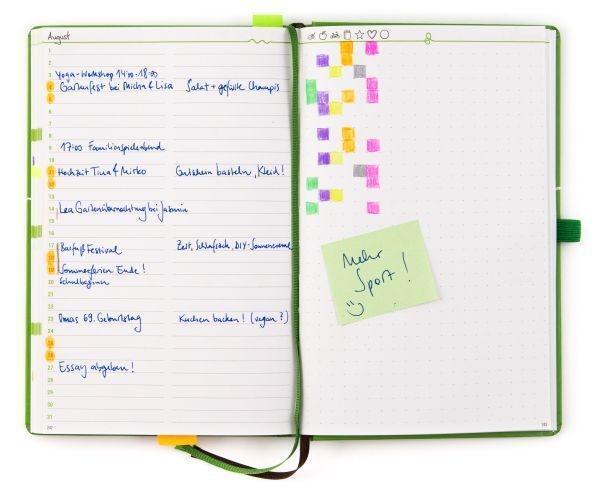 August
1
2
3 Yoga-Workshop 14:00-18:00
4 Gartenfest bei Micha & Lisa Salat + gefüllte Champis
5
8
9 17:00 Familienspieleabend
10
11 Hochzeit Tina & Mirko Gutschein basteln, Kleid!
12
13
14 Lea Gartenübernachtung bei Jasmin
15
16
17 Barfuß Festival Zelt, Schlafsack, DIY-Sonnencreme
18
19 Sommerferien Ende!
20 Schulbeginn
21
22
23 Omas 69. Geburtstag Kuchen backen! (vegan?)
24
25
26
27 Essay abgeben!
28
29
30
31
Mehr
Sport!